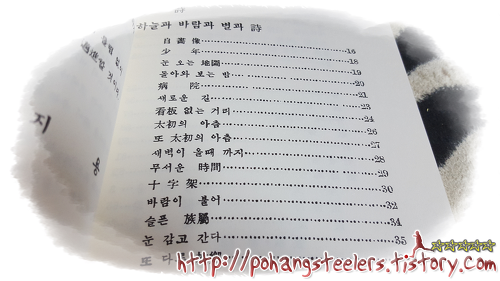 하늘과 바람과 별과 詩
自畵像……16
少年……18
눈 오는 地圖……19
돌아와 보는 밤……20
病院……21
새로운 길……23
看板 없는 거리……24
太初의 아츰……26
또 太初의 아츰……27
새벽이 올때 까지……28
무서운 時間……29
十字架……30
바람이 불어……32
슬픈 族屬……34
눈 감고 간다……35
또 다
지
용
http://pohangsteelers.tistory.com